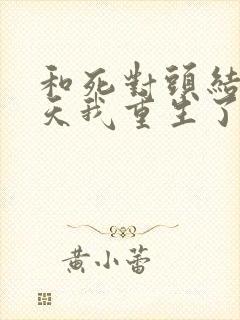 和死對頭結
天我重生了
黃小蕾